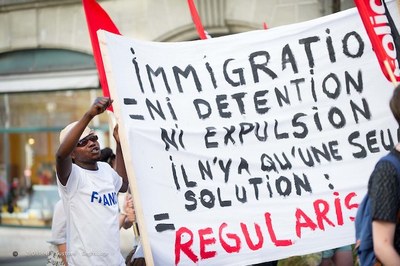 iMMiGRATiO
= Ni DETENTiON
Ni EXPULSiON
iL N'YA QU'UNE SEU
SOLUTiON :
= REGULARiS